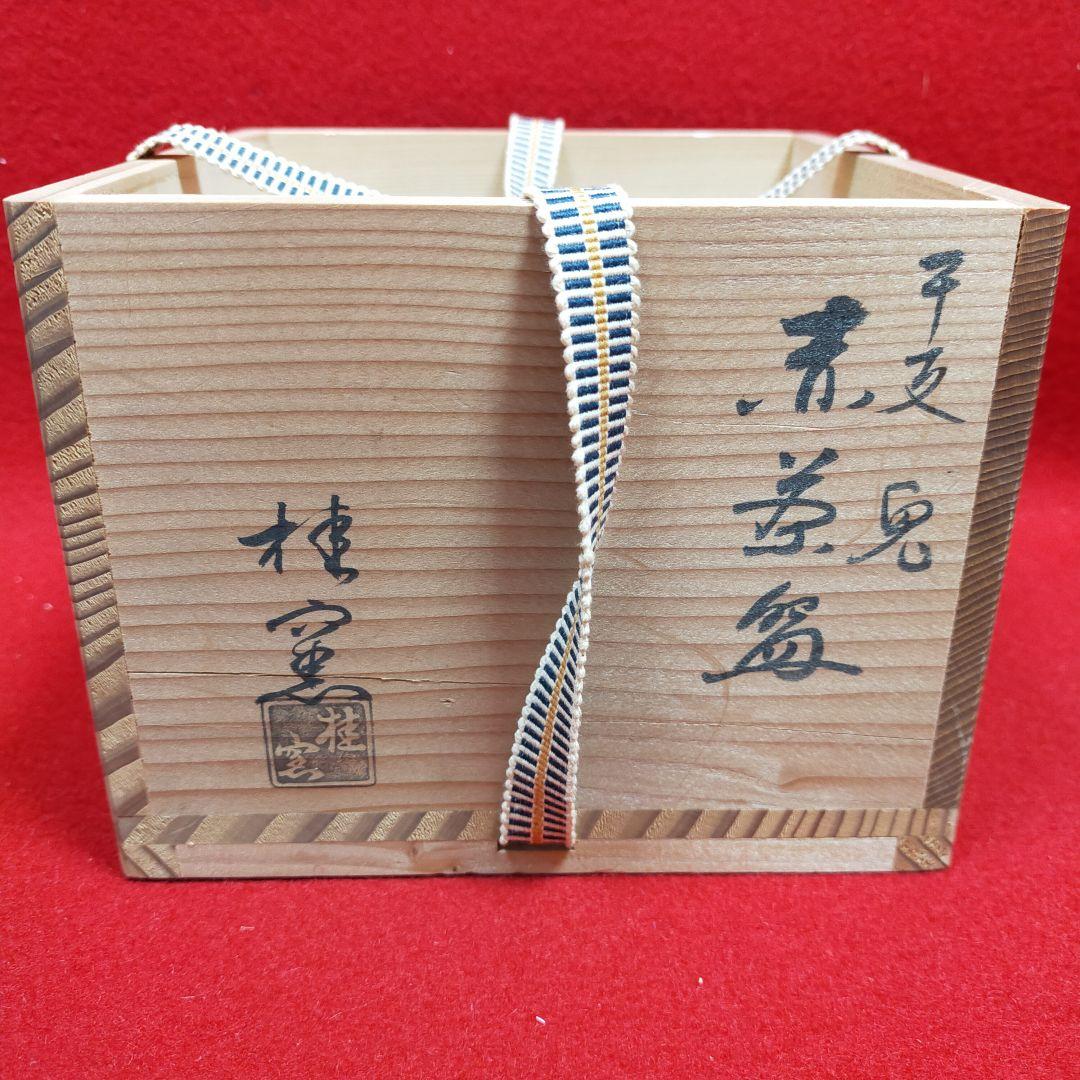 干支 兎
赤茶盌
桂窯
桂窯